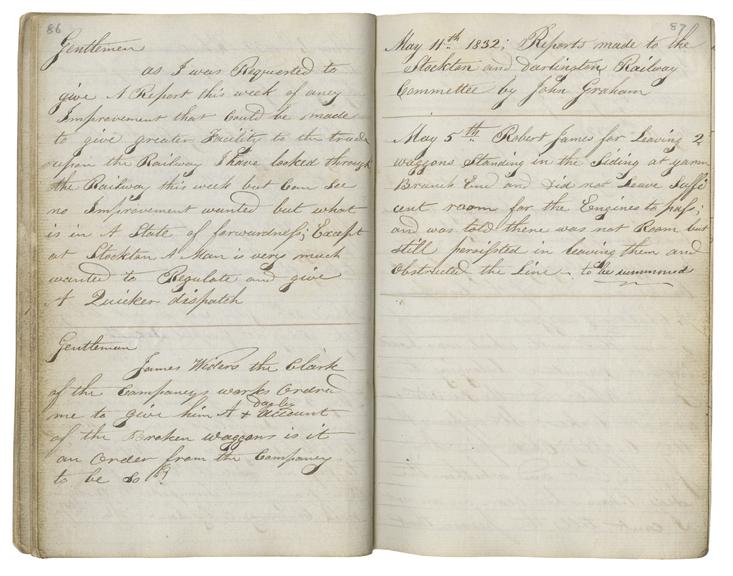 86
Gentlemen
as I was Requested to
give A Report this week of aney
Improvement that Could be made
to give greater Facility to the trade
upon the Railway I have looked through
the Railway this week but Can See
no Improvement wanted but what
is in A State of forwardness; Except
at Stockton A Man is very much
wanted to Regulate and give
A Quicker dispatch
Gentleman
James the Clark
of the Companeys works Ordred
me to give him A + account
dayley
of the Broken waggons is it
an Order from the Companey
to be So
87
May 11th 1832; Reports made to the
Stockton and Darlington Railway
Committee by John Graham
May 5th Robert James for Leaving 2
waggons Standing in the Siding at yarm
Branch End and did not Leave Suffi
cent room for the Engines to pass;
and was told there was not Room but
still persisted in leaving them and
Obstructed the Line. to be summoned